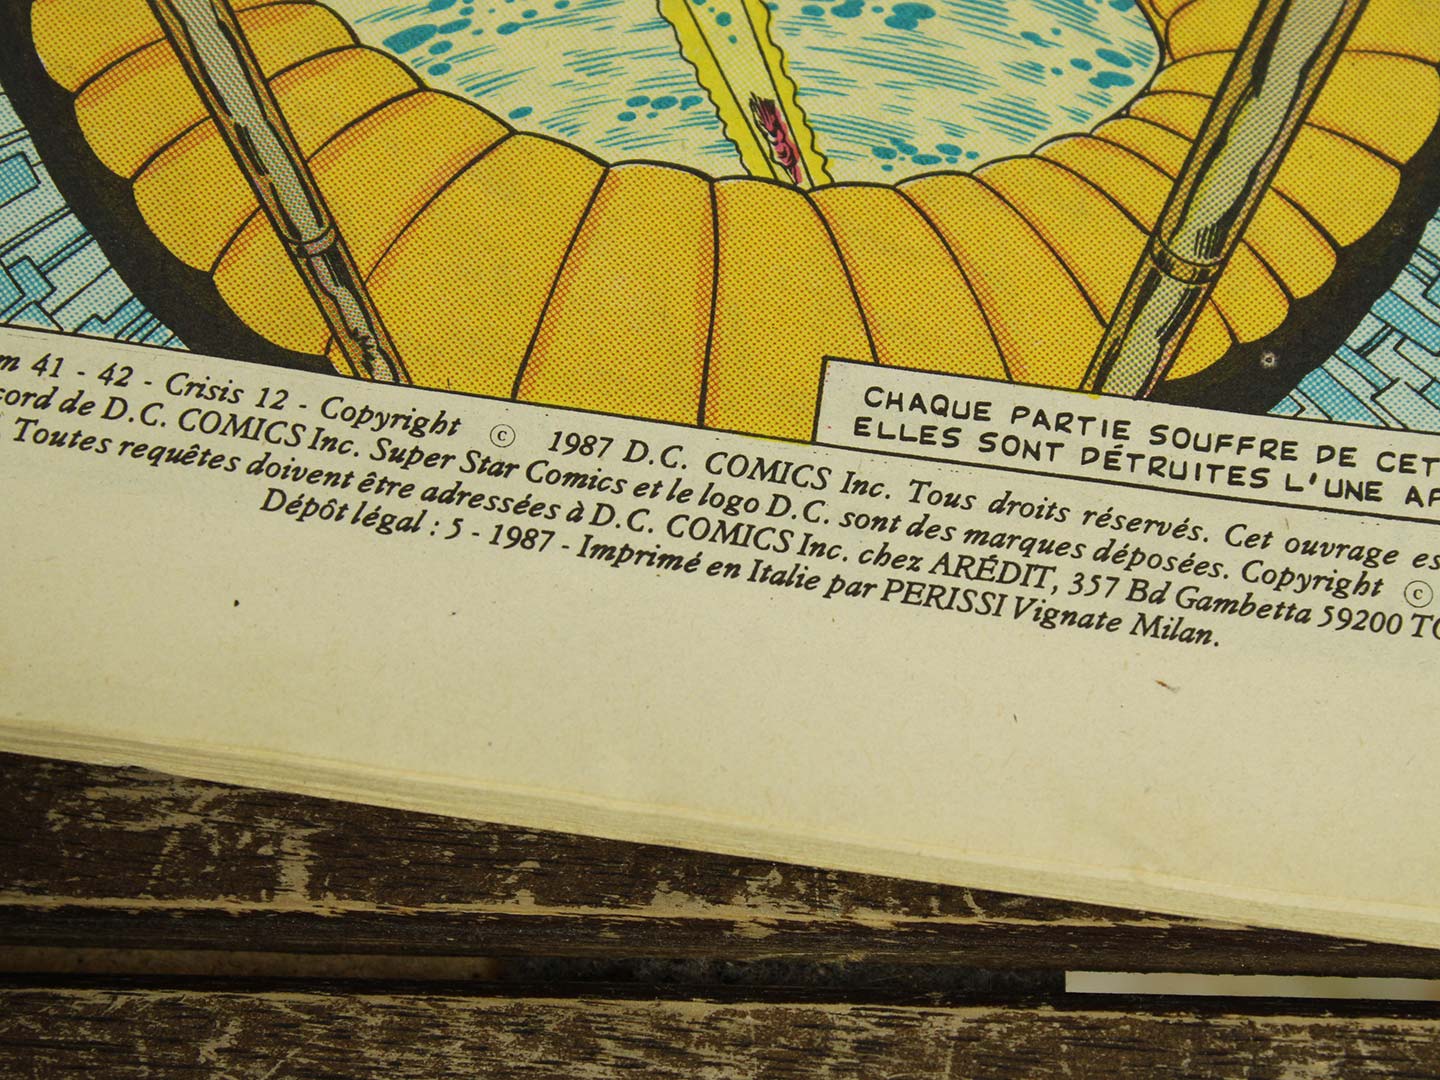 CHAQUE PARTIE SOUFFRE DE CET
ELLES SONT DÉTRUITES L'UNE
m 41 - 42 - Crisis 12 - Copyright © 1987 D.C. COMICS Inc. Tous droits réservés. Cet ouvrage es
cord de D.C. COMICS Inc. Super Star Comics et le logo D.C. sont des marques déposées. Copyright ©
Toutes requêtes doivent être adressées à D.C. COMICS Inc. chez ARÉDIT, 357 Bd Gambetta 59200 TO
Dépôt légal : 5 - 1987 - Imprimé en Italie par PERISSI Vignate Milan.